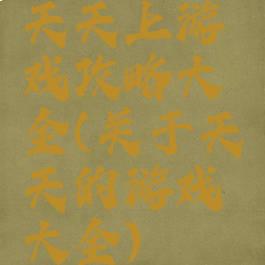 天天上游
戏攻略大
全(关于天
天的游戏
大全)